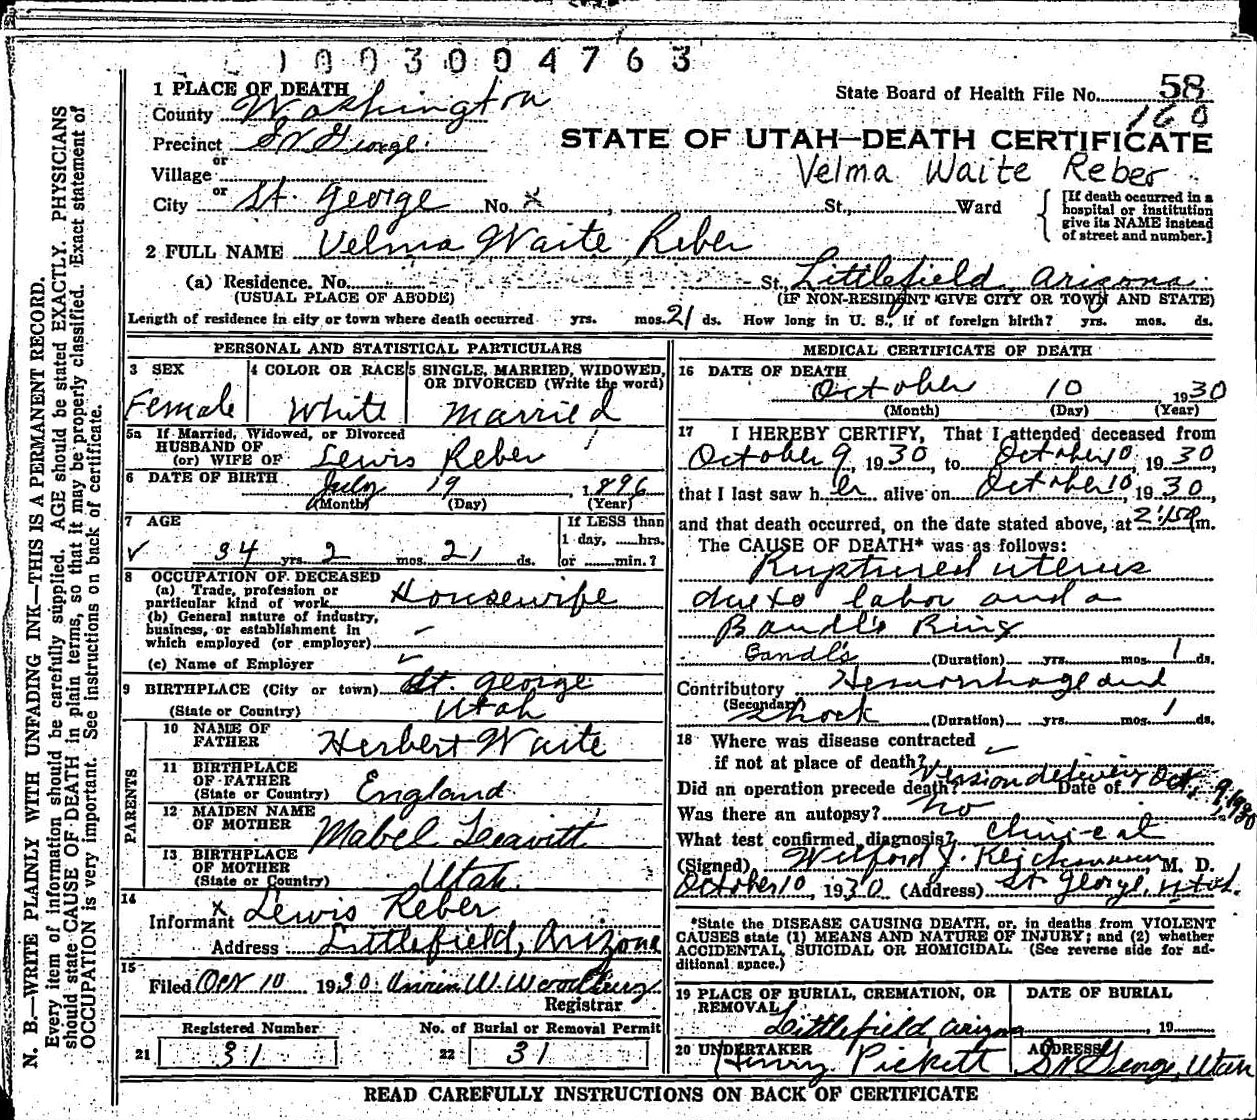 1003004763
1 PLACE OF DEATH
State Board of Health File No. 58
160
County Washington
Precinct St George
STATE OF UTAH—DEATH CERTIFICATE
or
Village
Velma Waite Reber
or
City St. George No. x , St., Ward
[If death occurred in a hospital or institution give its NAME instead of street and number.]
2 FULL NAME Velma Waite Reber
(a) Residence. No. St., Littlefield, Arizona
(USUAL PLACE OF ABODE) (IF NON-RESIDENT GIVE CITY OR TOWN AND STATE)
Length of residence in city or town where death occurred yrs. mos. 21 ds. How long in U. S., if of foreign birth? yrs. mos. ds.
PERSONAL AND STATISTICAL PARTICULARS
3 SEX
Female
4 COLOR OR RACE
White
5 SINGLE, MARRIED, WIDOWED, OR DIVORCED (Write the word)
Married
5a If Married, Widowed, or Divorced
HUSBAND OF
(or) WIFE OF Lewis Reber
6 DATE OF BIRTH
July 19 1896
(Month) (Day) (Year)
7 AGE
34 yrs. 2 mos. 21 ds.
If LESS than
1 day, hrs.
or min.?
8 OCCUPATION OF DECEASED
(a) Trade, profession or
particular kind of work Housewife
(b) General nature of industry,
business, or establishment in
which employed (or employer)
(c) Name of Employer
9 BIRTHPLACE (City or town) St. George
(State or Country) Utah
PARENTS
10 NAME OF
FATHER Herbert Waite
11 BIRTHPLACE
OF FATHER
(State or Country) England
12 MAIDEN NAME
OF MOTHER Mabel Leavitt
13 BIRTHPLACE
OF MOTHER
(State or Country) Utah
14
Informant x Lewis Reber
Address Littlefield, Arizona
15
Filed Oct 10 1930 W. Woodbury
Registrar
Registered Number
21 31
No. of Burial or Removal Permit
22 31
MEDICAL CERTIFICATE OF DEATH
16 DATE OF DEATH
October 10 1930
(Month) (Day) (Year)
17 I HEREBY CERTIFY, That I attended deceased from
October 9, 1930, to October 10, 1930
that I last saw her alive on October 10, 1930,
and that death occurred, on the date stated above, at m.
The CAUSE OF DEATH* was as follows:
Ruptured uterus
due to labor and a
Bandl's Ring
Bandl's (Duration) yrs. mos. 1 ds.
Contributory Hemorrhage and
(Secondary)
Shock (Duration) yrs. mos. 1 ds.
18 Where was disease contracted
if not at place of death?
Did an operation precede death? Version delivery Date of Oct. 9, 1930
Was there an autopsy? no
What test confirmed diagnosis? Clinical
(Signed) Wilford J. M. D.
October 10, 1930 (Address) St George, Utah.
*State the DISEASE CAUSING DEATH, or, in deaths from VIOLENT
CAUSES state (1) MEANS AND NATURE OF INJURY; and (2) whether
ACCIDENTAL, SUICIDAL OR HOMICIDAL. (See reverse side for ad-
ditional space.)
19 PLACE OF BURIAL, CREMATION, OR
REMOVAL
Littlefield Arizona
DATE OF BURIAL
, 19
20 UNDERTAKER
Henry Pickett
ADDRESS
St George, Utah
READ CAREFULLY INSTRUCTIONS ON BACK OF CERTIFICATE
N. B.—WRITE PLAINLY WITH UNFADING INK—THIS IS A PERMANENT RECORD.
Every item of information should be carefully supplied. AGE should be stated EXACTLY. PHYSICIANS
should state CAUSE OF DEATH in plain terms, so that it may be properly classified. Exact statement of
OCCUPATION is very important. See instructions on back of certificate.